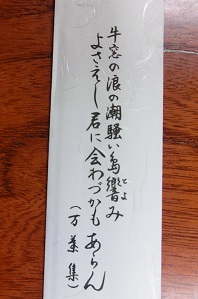 牛窓の浪の潮騒い島響み
よさえし君に会わづかもあらん
(万葉集)
とよ